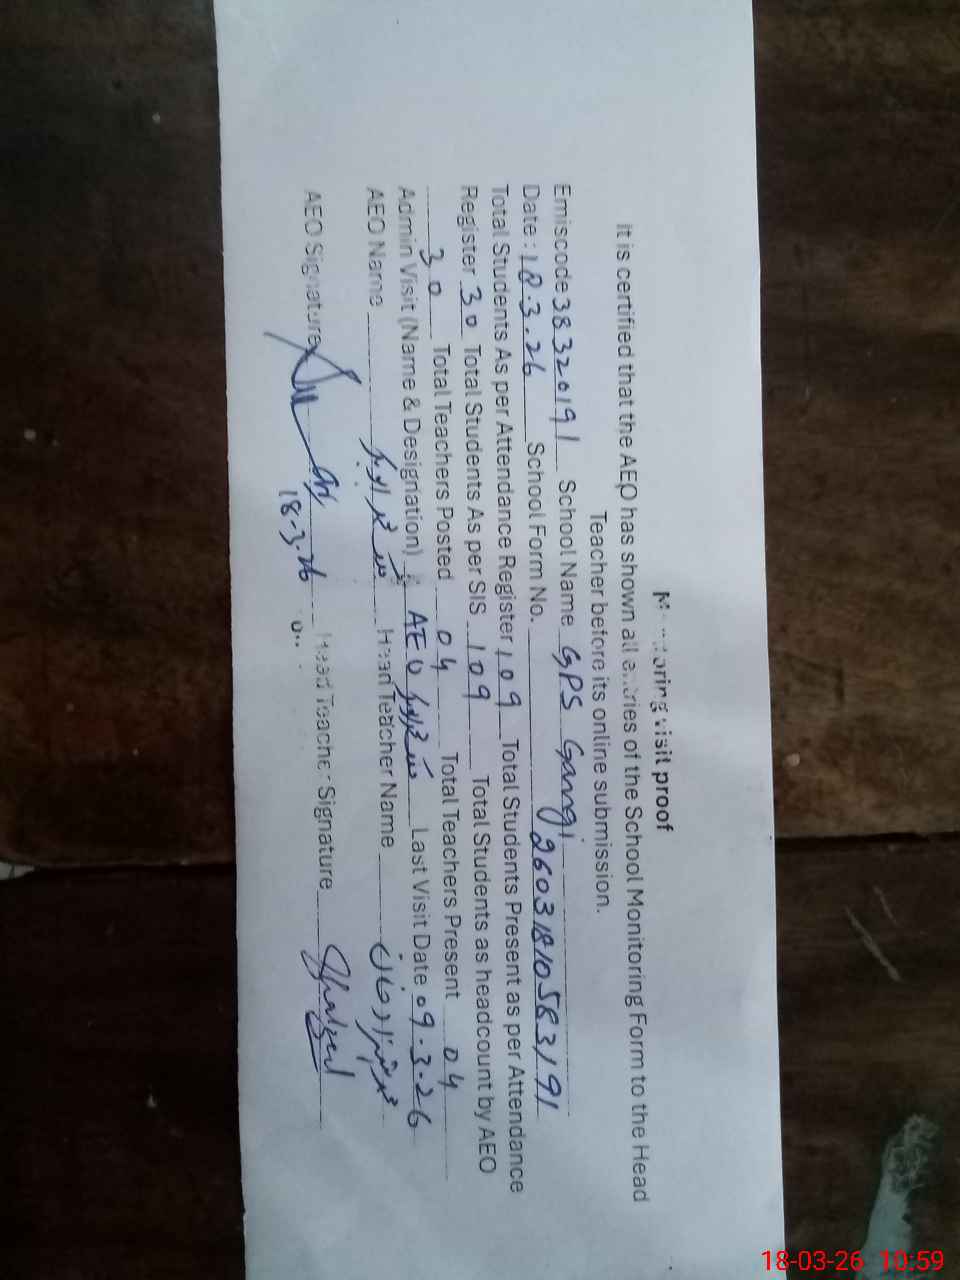 Monitoring visit proof
It is certified that the AEO has shown all entries of the School Monitoring Form to the Head
Teacher before its online submission.
Emiscode 38320191 School Name GPS Gangi
Date : 18.3.26 School Form No. 26031810583191
Total Students As per Attendance Register 109 Total Students Present as per Attendance
Register 30 Total Students As per SIS 109 Total Students as headcount by AEO
30 Total Teachers Posted 04 Total Teachers Present 04
Admin Visit (Name & Designation) AEO Last Visit Date 09.3.26
AEO Name Head Teacher Name
AEO Signature Head Teacher Signature
18.3.26
18-03-26 10:59